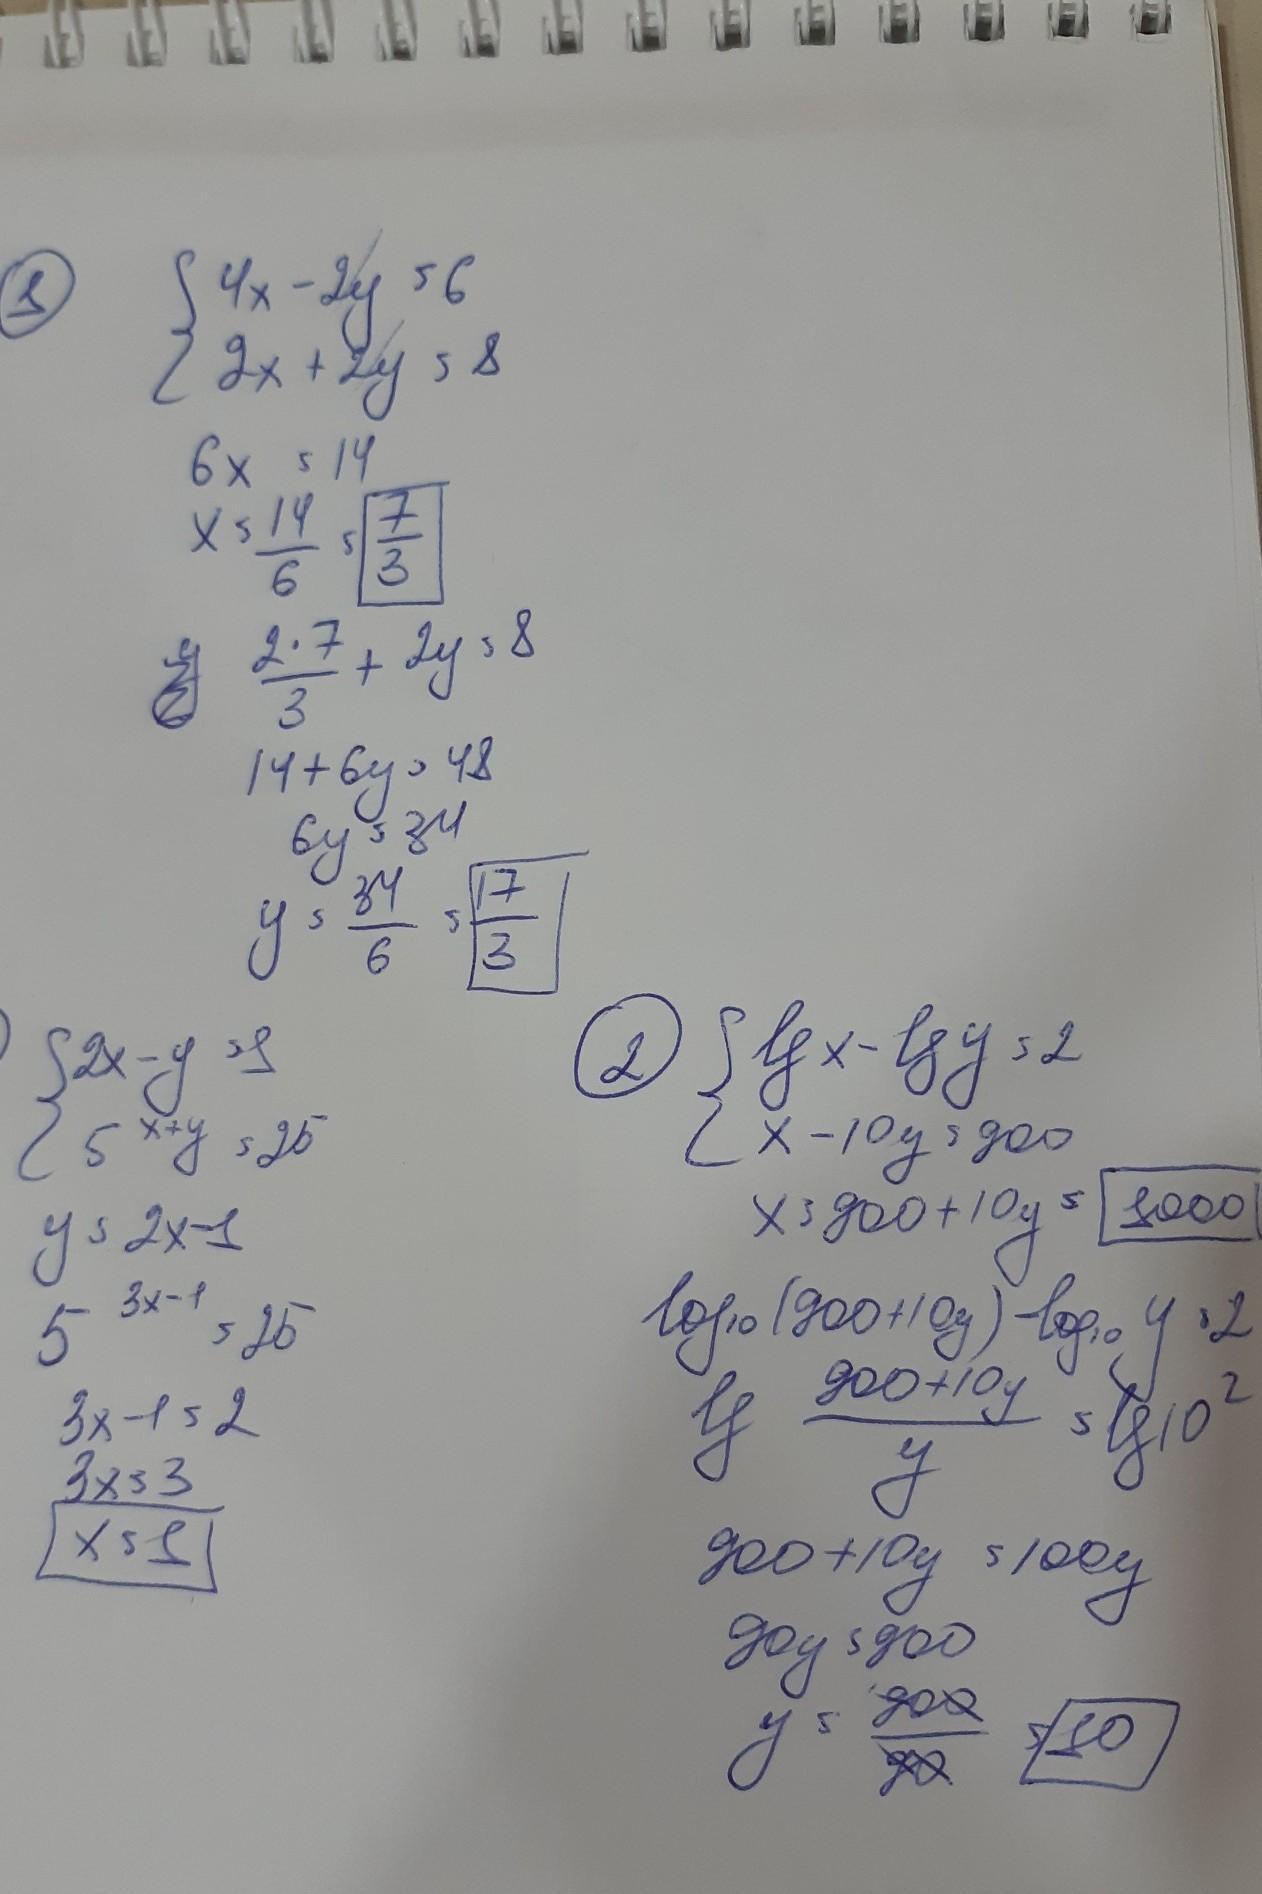 1
4x - 2y = 6
2x + 2y = 8
6x = 14
x = 14/6 = 7/3
2·7/3 + 2y = 8
14 + 6y = 48
6y = 34
y = 34/6 = 17/3
2x - y = 1
5^(x+y) = 25
y = 2x - 1
5^(3x-1) = 25
3x - 1 = 2
3x = 3
x = 1
2
lg x - lg y = 2
x - 10y = 900
x = 900 + 10y = 1000
log₁₀(900 + 10y) - log₁₀ y = 2
lg (900 + 10y)/y = lg 10²
900 + 10y = 100y
90y = 900
y = 900/90 = 10